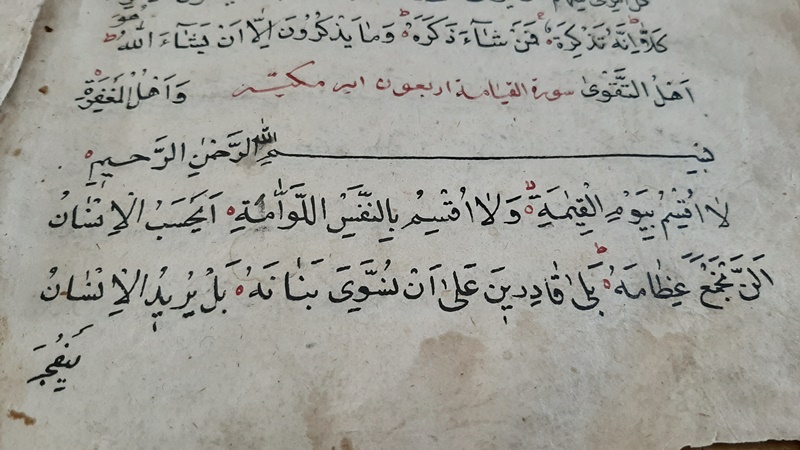 كَلَّا اِنَّهُ تَذْكِرَةٌ فَمَنْ شَٓاءَ ذَكَرَهُ وَمَا يَذْكُرُونَ اِلَّا اَنْ يَشَٓاءَ اللّٰهُ هُوَ
اَهْلُ التَّقْوٰى سورة القيامة اربعون ايه مكية وَاَهْلُ الْمَغْفِرَةِ
بِسْمِ اللّٰهِ الرَّحْمٰنِ الرَّحِيمِ
لَا اُقْسِمُ بِيَوْمِ الْقِيٰمَةِ وَلَا اُقْسِمُ بِالنَّفْسِ اللَّوَّامَةِ اَيَحْسَبُ الْاِنْسَانُ
اَلَّنْ نَجْمَعَ عِظَامَهُ بَلٰى قَادِرِينَ عَلٰى اَنْ نُسَوِّيَ بَنَانَهُ بَلْ يُرِيدُ الْاِنْسَانُ
لِيَفْجُرَ